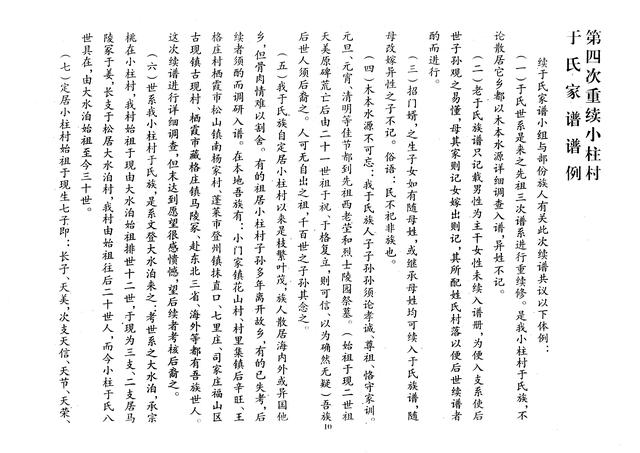 第四次重续小柱村
于氏家谱谱例
续于氏家谱小组与部份族人有关此次续谱共议以下体例：
（一）于氏世系是来之先祖三次谱系进行重续修。是我小柱村于氏族，不
论散居它乡都以木本水源详细调查入谱，异姓不记。
（二）老于氏族谱只记载男性为主干女性未续入谱册，为便入支系使后
世子孙观之易懂，母其家则记女嫁出则记，其所配姓氏村落以便后世续谱者
酌而进行。
（三）招门婿，之生子女如有随母姓，或继承母姓均可续入于氏族谱，随
母改嫁异性之子不记。俗语：民不祀非族也。
（四）木本水源不可忘：我于氏族人子子孙孙须论孝诚、尊祖、恪守家训。
元旦、元宵、清明等佳节都到先祖西老茔和烈士陵园祭墓。（始祖于现二世祖
天美原碑荒亡后由二十一世祖于祝、于格复立，则可信，以为确然无疑）吾族
后世人须后裔之。人可无自出之祖，千百世之子孙其念之。
（五）我于氏族自定居小柱村以来是枝繁叶茂，族人散居海内外或异国他
乡，但骨肉情难以割舍。有的祖居小柱村子孙多年离开故乡，有的已失考，后
续者须酌而调研入谱。在本地吾族有：小门家镇花山村、村里集镇后辛旺、王
格庄村栖霞市松山镇南杨家村、蓬莱市登州镇抹直口、七里庄、司家庄福山区
古现镇古现村、栖霞市藏格庄镇马陵冢、赴东北三省、海外等都有吾族世人。
这次续谱进行详细调查，但未达到愿望很感愤憾，望后续者考核后裔之。
（六）世系我小柱村于氏族，是系文登大水泊来之；考世系之大水泊，承宗
桃在小柱村，我村始祖于现由大水泊始祖排世十二世，于现为三支、二支居马
陵冢于姜，长支于松居大水泊村，我村由始祖往后二十世人，而今小柱于氏八
世具在，由大水泊始祖至今三十世。
（七）定居小柱村始祖于现生七子即：长子、天美、次支天信、天节、天荣、
10